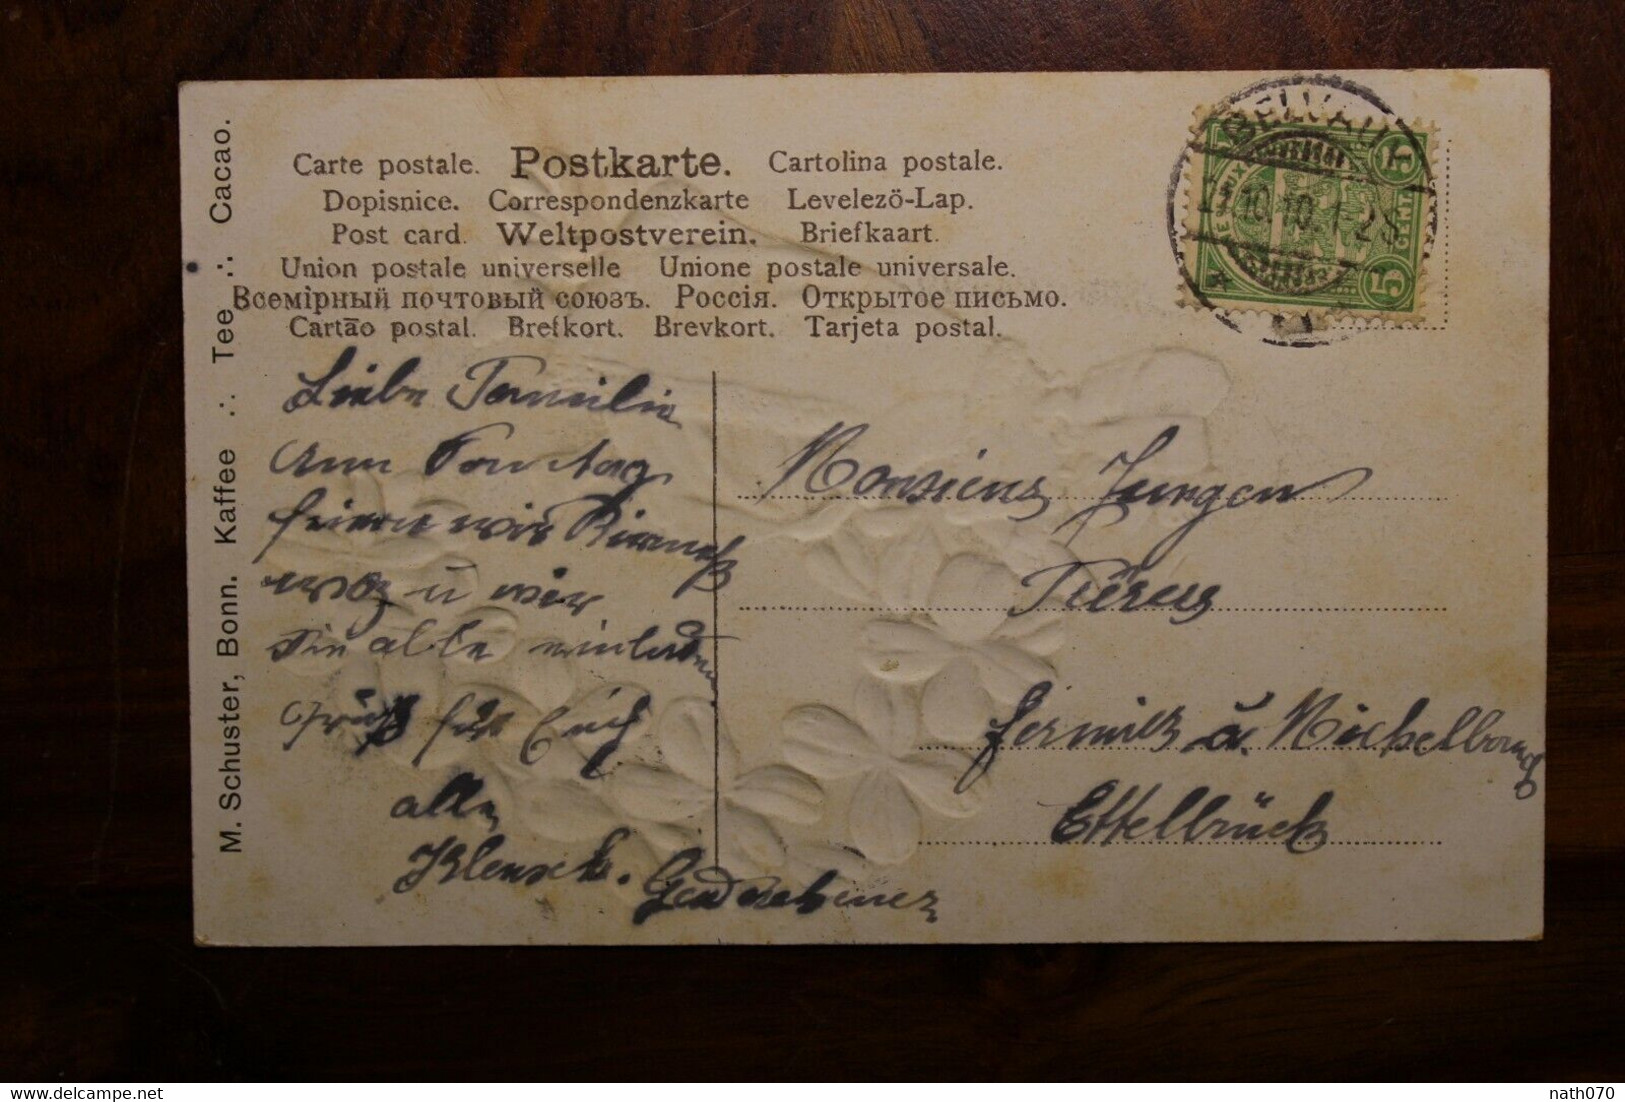 M. Schuster, Bonn. Kaffee ∴ Tee ∴ Cacao.
Carte postale. Postkarte. Cartolina postale.
Dopisnice. Correspondenzkarte Levelezö-Lap.
Post card. Weltpostverein. Briefkaart.
Union postale universelle Unione postale universale.
Всемірный почтовый союзъ. Россія. Открытое письмо.
Cartāo postal. Brefkort. Brevkort. Tarjeta postal.
BELVAUX
10.10.1-2S
5 CENT. 5
Liebe Familie
Am Sonntag
feiern wir Kirmeß
wozu wir
Sie alle einladen
Gruß für Euch
alle
Monsieur Jungen
Michelbouch
Ettelbrück
nath070